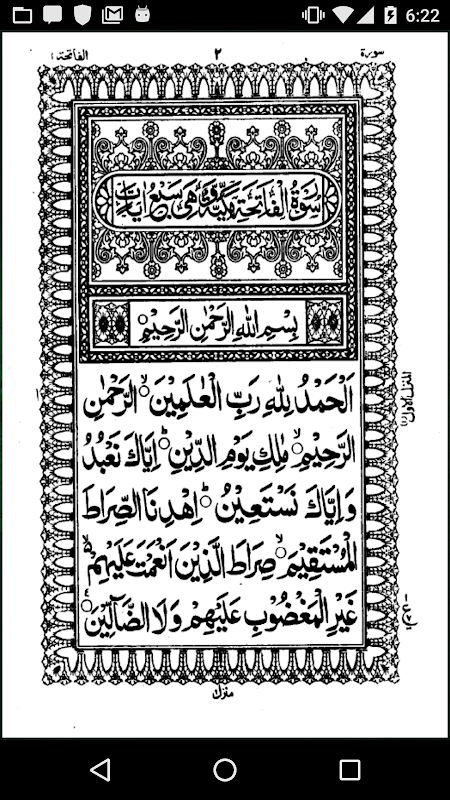 6:22
سورة
٢
الفاتحة ١
سُوْرَةُ الْفَاتِحَةِ مَكِّيَّةٌ وَّهِىَ سَبْعُ اٰيَاتٍ
بِسْمِ اللّٰهِ الرَّحْمٰنِ الرَّحِيْمِ
اَلْحَمْدُ لِلّٰهِ رَبِّ الْعٰلَمِيْنَ ۙ الرَّحْمٰنِ
الرَّحِيْمِ ۙ مٰلِكِ يَوْمِ الدِّيْنِ ؕ اِيَّاكَ نَعْبُدُ
وَاِيَّاكَ نَسْتَعِيْنُ ؕ اِهْدِنَا الصِّرَاطَ
الْمُسْتَقِيْمَ ۙ صِرَاطَ الَّذِيْنَ اَنْعَمْتَ عَلَيْهِمْ ۙ
غَيْرِ الْمَغْضُوْبِ عَلَيْهِمْ وَلَا الضَّآلِّيْنَ
المنزل الاول
منزل